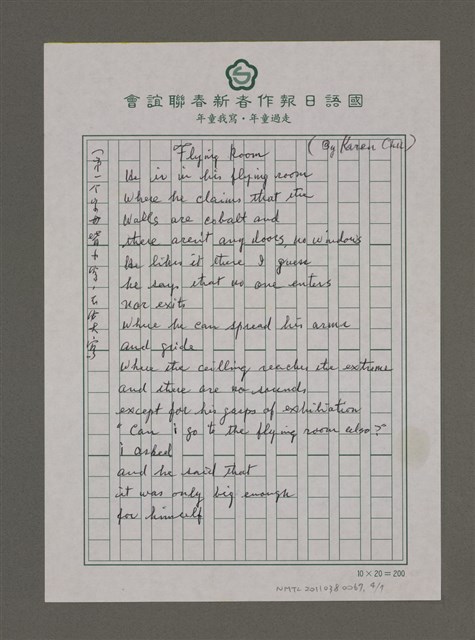 國語日報作者新春聯誼會
走過童年·寫我童年
Flying Room
(By Karen Chu)
He is in his flying room
Where he claims that the
Walls are cobalt and
there aren't any doors, no windows
He likes it there I guess
he says that no one enters
nor exits
Where he can spread his arms
and glide
Where the ceilling reaches the extreme
and there are no sounds
except for his gasps of exhiliation
"Can i go to the flying room also?"
i asked
and he said that
it was only big enough
for himself
(第一个字母皆大寫,
10×20=200
NMTL 2011038 0067, 4/9